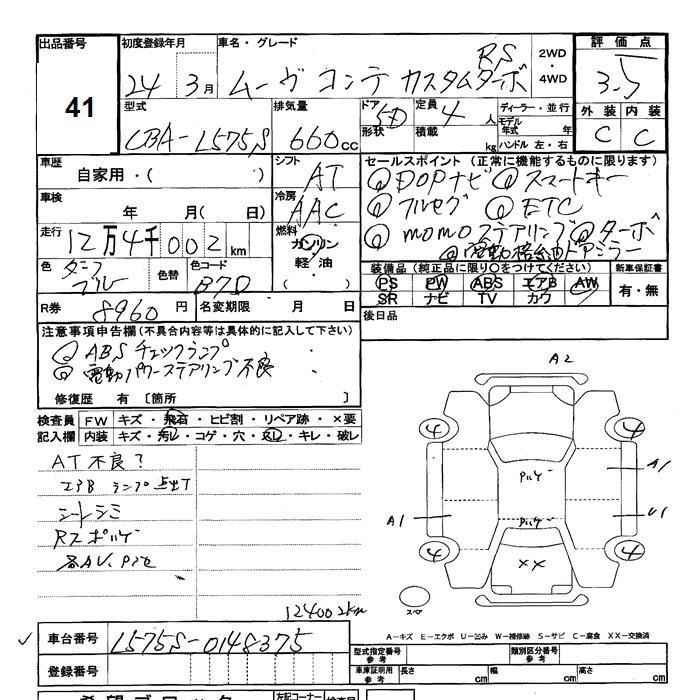 出品番号 初度登録年月 車名・グレード RS 2WD・4WD 評価点
41 24年 3月 ムーヴ コンテ カスタムターボ 3.5
型式 排気量 ドア形状 定員 積載 ディーラー・並行 外装 内装
CBA-L575S 660cc 5D 4人 kg モデル年式 年 ハンドル 左・右 C C
車歴 シフト セールスポイント(正常に機能するものに限ります)
自家用・( ) AT ◎DOPナビ ◎スマートキー
車検 年 月( 日) 冷房 AAC ◎フルセグ ◎ETC
走行 12万4千002km 燃料 ガソリン 軽・油 ◎momoステアリング ◎ターボ
◎電動格納ドアミラー
色 ブルー 色替 色コード B70 装備品(純正品に限り○をつけてください) 新車保証書
PS PW ABS エアB AW 有・無
SR ナビ TV カワ
R券 8960円 名変期限 月 日 後日品
注意事項申告欄(不具合内容等は具体的に記入して下さい)
◎ABSチェックランプ
◎電動パワーステアリング不良
修復歴 有 〔箇所 〕
検査員 FW キズ・飛石・ヒビ割・リペア跡・×要
記入欄 内装 キズ・汚レ・コゲ・穴・スレ・キレ・破レ
AT不良?
エアB ランプ点灯
シートシミ
A2
4 4
A1 A1
U1
4 4
××
スペア
124002km
A-キズ E-エクボ U-凹み W-補修跡 S-サビ C-腐食 XX-交換済
車台番号 L575S-0148375 型式指定番号 参考 類別区分番号 参考
登録番号 車庫証明用 参考 長さ cm 幅 cm 高さ cm
左記コーナー